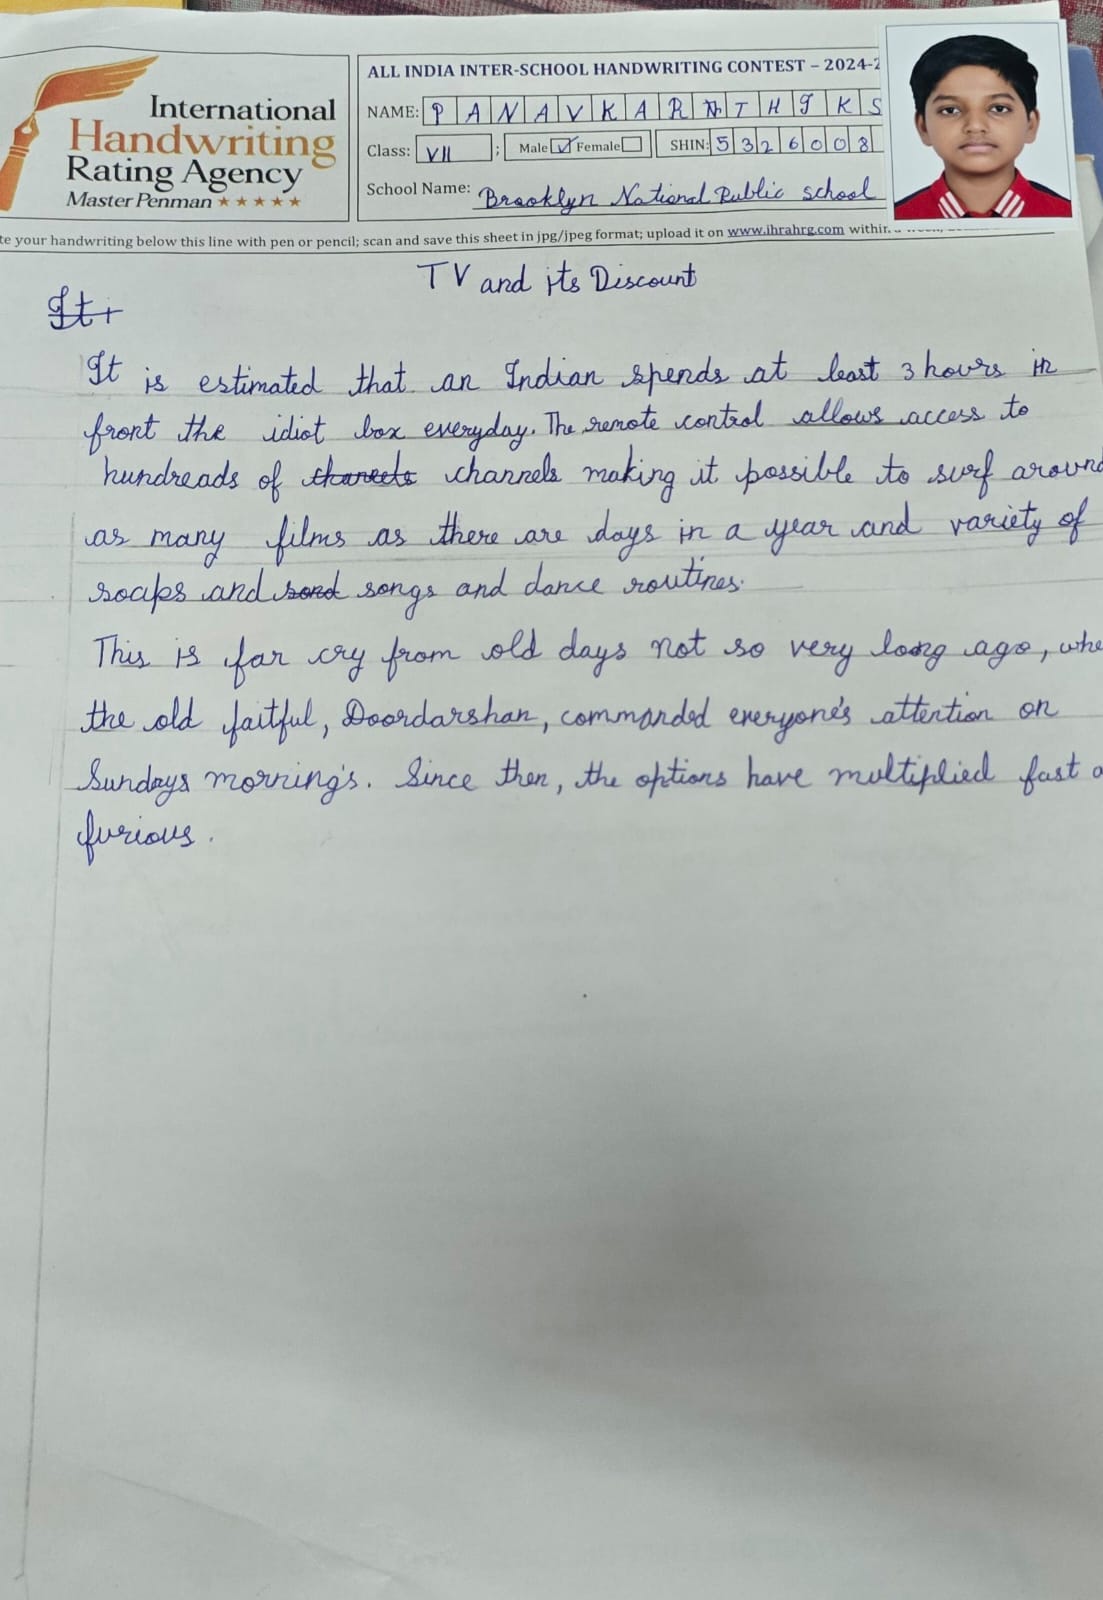 International
Handwriting
Rating Agency
Master Penman ★★★★★
ALL INDIA INTER-SCHOOL HANDWRITING CONTEST – 2024-2
NAME: PANAVKARTHIKS
Class: VII ; Male ☑ Female ☐ SHIN: 5326008
School Name: Brooklyn National Public school
te your handwriting below this line with pen or pencil; scan and save this sheet in jpg/jpeg format; upload it on www.ihrahrg.com within a week,
TV and its Discount
It
It is estimated that an Indian spends at least 3 hours in
front the idiot box everyday. The remote control allows access to
hundreads of channels making it possible to surf around
as many films as there are days in a year and variety of
soaps and songs and dance routines.
This is far cry from old days not so very long ago, whe
the old faitful, Doordarshan, commanded everyone's attention on
Sundays morning's. Since then, the options have multiplied fast a
furious.